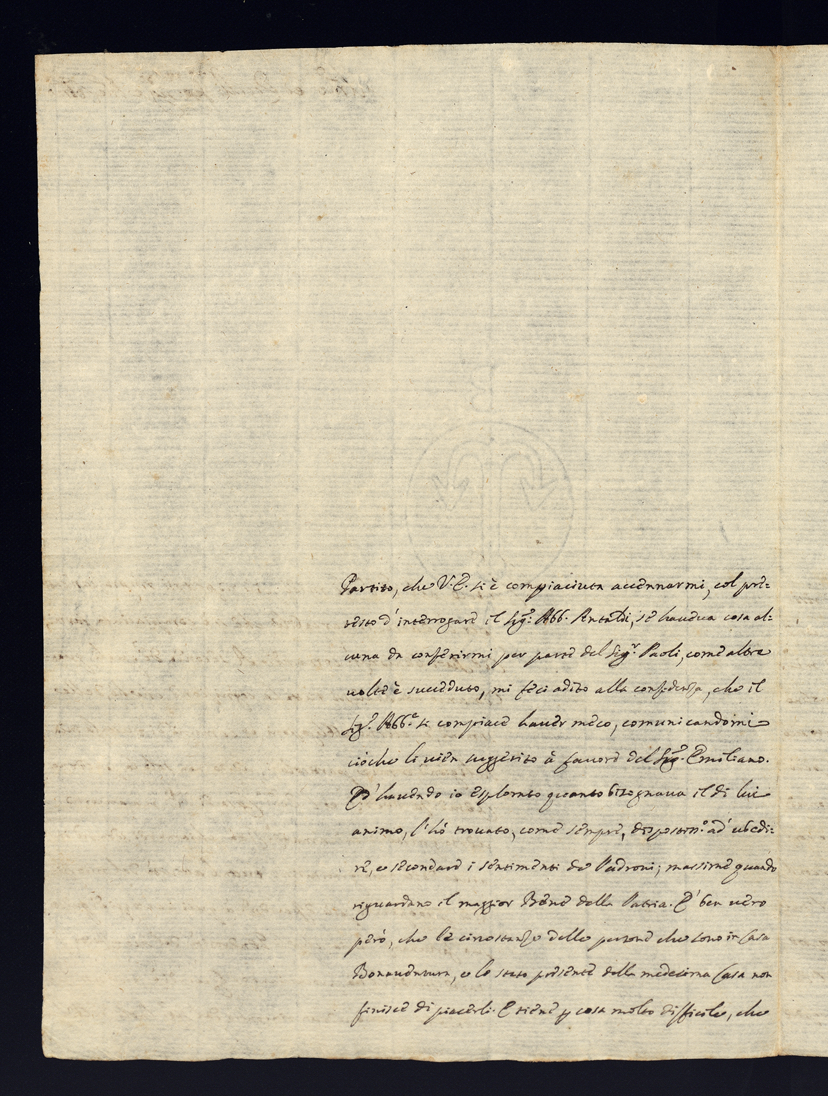 Partito, che V.E. si è compiaciuta accennarmi, col pre=
testo d'interrogare il Sigr. Abb. Antaldi, se haueua cosa al=
cuna da conferirmi per parte del Sigr. Paoli, come altre
uolte è succeduto, mi feci adito alla confidenza, che il
Sigr. Abbe. si compiace hauer meco, comunicandomi
ciòche li uien suggerito à fauore del Sigr. Emiliano.
Et hauendo io esplorato quanto bisognaua il di lui
animo, l'hò trouato, come sempre, dispostiss.o ad ubedi=
re, e secondare i sentimenti de Padroni; massime quando
riguardano il maggior Bene della Patria. E' ben uero
però, che le circostanze delle persone che sono in Casa
Bonauentura, e lo stato presente della medesima Casa non
finisce di piacerli. E tiene p cosa molto difficile, che